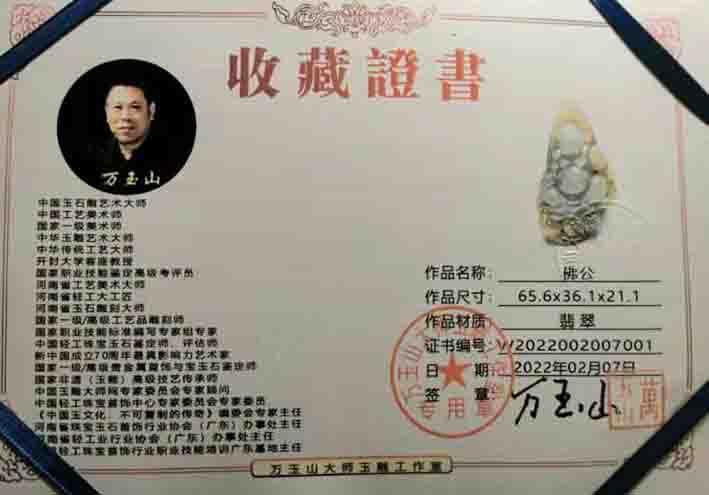 收藏證書
万玉山
中国玉石雕艺术大师
中国工艺美术师
国家一级美术师
中华玉雕艺术大师
中华传统工艺大师
开封大学客座教授
国家职业技能鉴定高级考评员
河南省工艺美术大师
河南省轻工大工匠
河南省玉石雕刻大师
国家一级/高级工艺品雕刻师
国家职业技能标准编写专家组专家
中国轻工珠宝玉石鉴定师、评估师
新中国成立70周年最具影响力艺术家
国家一级/高级贵金属首饰与宝玉石鉴定师
国家非遗（玉雕）高级技艺传承师
中国玉雕大师网专家委员会专家顾问
中国轻工珠宝首饰中心专家委员会专家委员
《中国玉文化，不可复制的传奇》编委会专家主任
河南省珠宝玉石首饰行业协会（广东）办事处主任
河南省轻工业行业协会（广东）办事处主任
轻工珠宝首饰行业职业技能培训广东基地主任
作品名称: 佛公
作品尺寸: 65.6x36.1x21.1
作品材质: 翡翠
证书编号: W2022002007001
日 期: 2022年02月07日
签 章: 万玉山
万玉山大师
专用章
萬
万玉山大师玉雕工作室